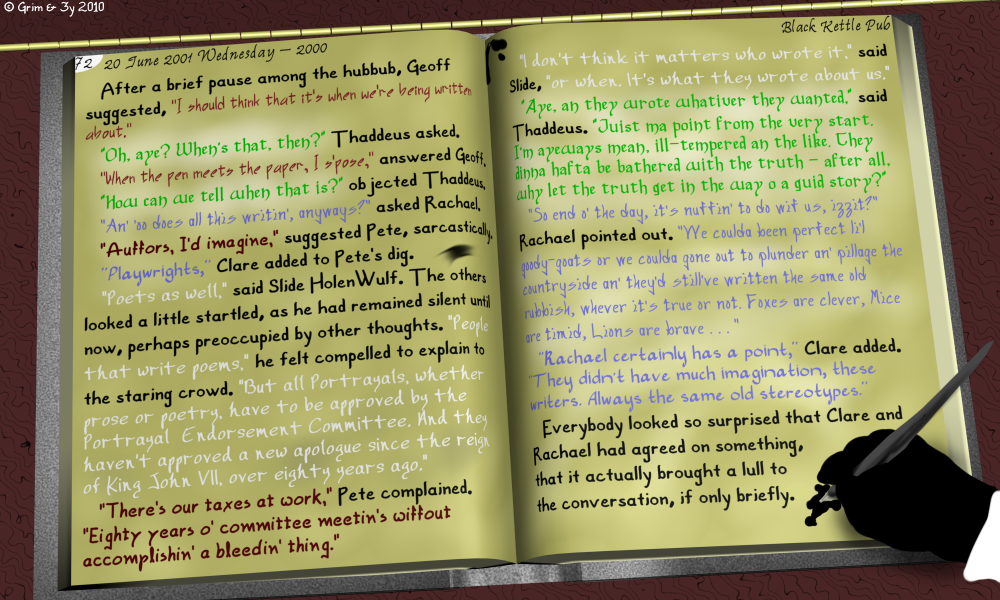 © Grim & 3y 2010
72 20 June 2001 Wednesday — 2000
After a brief pause among the hubbub, Geoff
suggested, "I should think that it's when we're being written
about."
"Oh, aye? When's that, then?" Thaddeus asked.
"When the pen meets the paper, I s'pose," answered Geoff.
"How can we tell when that is?" objected Thaddeus.
"An' 'oo does all this writin', anyways?" asked Rachael.
"Auffors, I'd imagine," suggested Pete, sarcastically.
"Playwrights," Clare added to Pete's dig.
"Poets as well," said Slide HolenWulf. The others
looked a little startled, as he had remained silent until
now, perhaps preoccupied by other thoughts. "People
that write poems," he felt compelled to explain to
the staring crowd. "But all Portrayals, whether
prose or poetry, have to be approved by the
Portrayal Endorsement Committee. And they
haven't approved a new apologue since the reign
of King John VII, over eighty years ago."
"There's our taxes at work," Pete complained.
"Eighty years o' committee meetin's wiffout
accomplishin' a bleedin' thing."
Black Kettle Pub
"I don't think it matters who wrote it," said
Slide, "or when. It's what they wrote about us."
"Aye, an they wrote whativer they wanted," said
Thaddeus. "Juist ma point from the very start.
I'm ayeways mean, ill-tempered an the like. They
dinna hafta be bathered with the truth — after all,
why let the truth get in the way o a guid story?"
"So end o' the day, it's nuffin' to do wif us, izzit?"
Rachael pointed out. "We coulda been perfect li'l
goody-goats or we coulda gone out to plunder an' pillage the
countryside an' they'd still've written the same old
rubbish, whever it's true or not. Foxes are clever, Mice
are timid, Lions are brave . . ."
"Rachael certainly has a point," Clare added.
"They didn't have much imagination, these
writers. Always the same old stereotypes."
Everybody looked so surprised that Clare and
Rachael had agreed on something,
that it actually brought a lull to
the conversation, if only briefly.